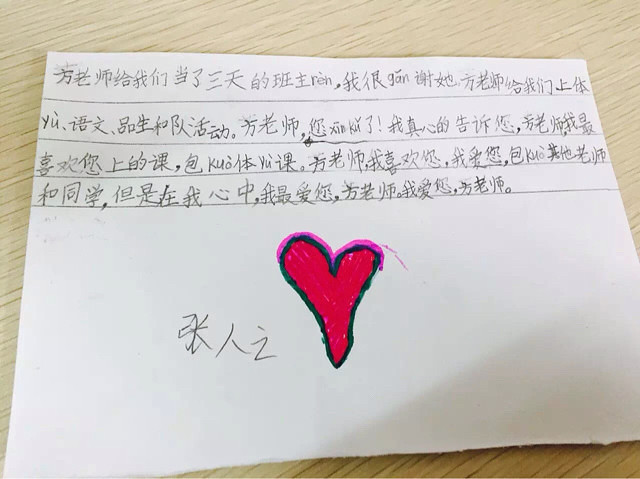 方老师给我们当了三天的班主rèn,我很gǎn谢她。方老师给我们上体
yù、语文、品生和队活动。方老师,您xīn kǔ了!我真心的告诉您,方老师我最
喜欢您上的课,包kuò体yù课。方老师,我喜欢您,我爱您,包kuò其他老师
和同学,但是在我心中,我最爱您,方老师。我爱您,方老师。
张人之